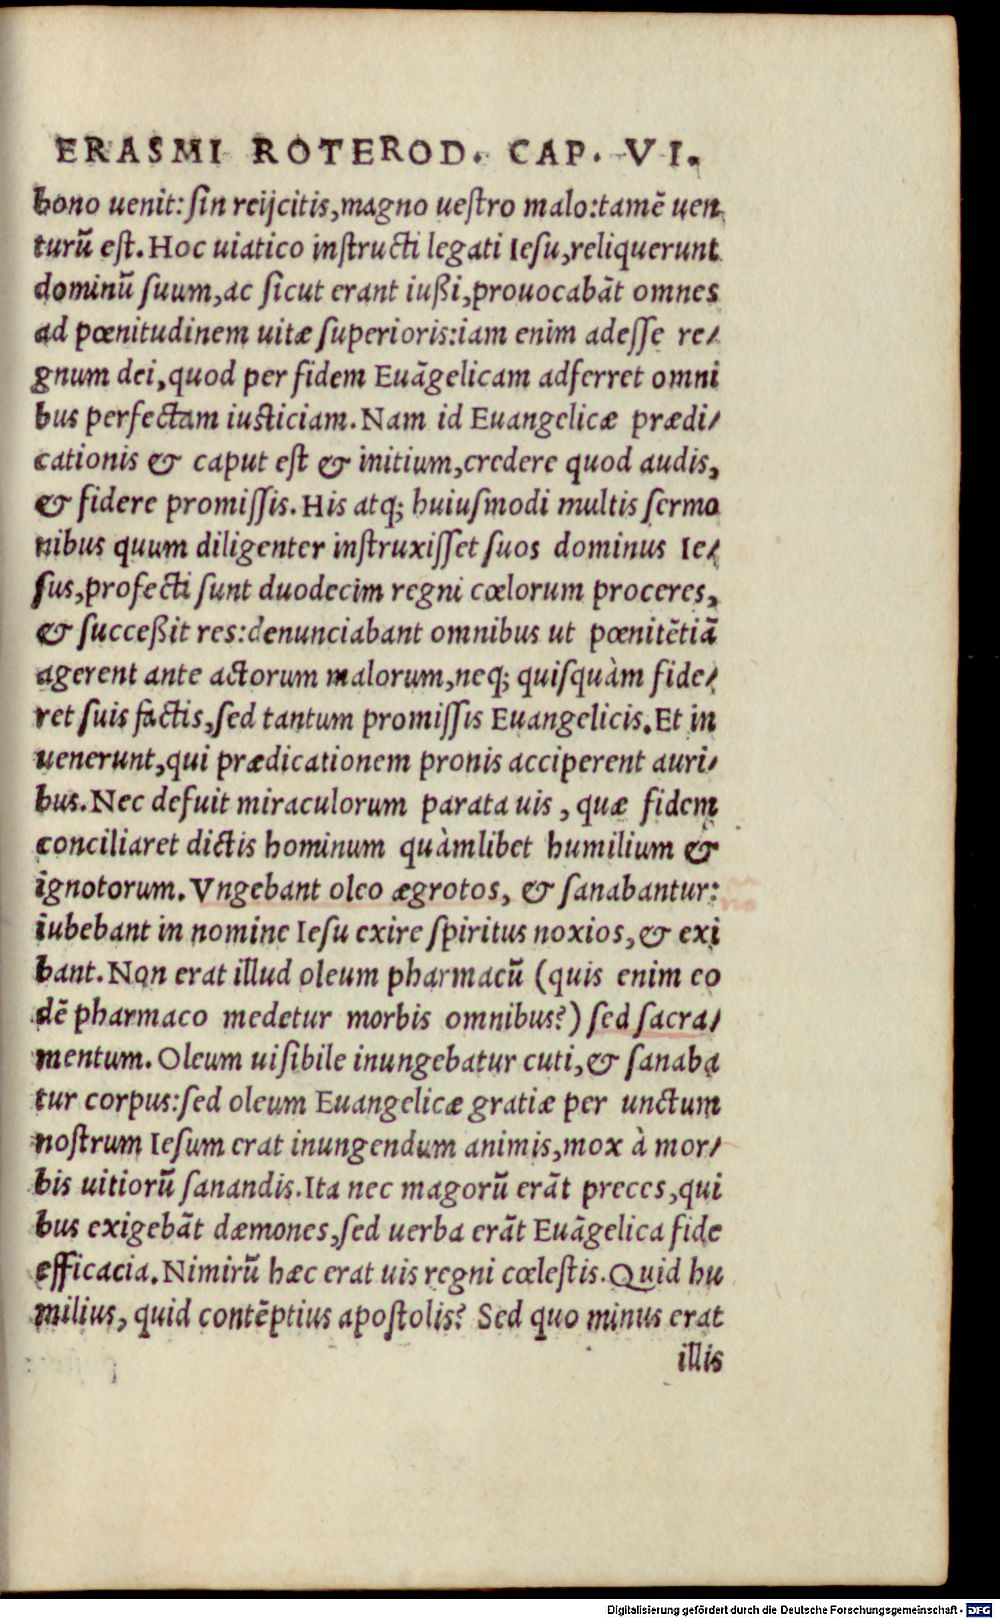 ERASMI ROTEROD. CAP. VI.
bono uenit: ſin reijcitis, magno ueſtro malo: tamē uen
turū eſt. Hoc uiatico inſtructi legati Ieſu, reliquerunt
dominū ſuum, ac ſicut erant iußi, prouocabāt omnes
ad pœnitudinem uitæ ſuperioris: iam enim adeſſe re/
gnum dei, quod per fidem Euāgelicam adferret omni
bus perfectam iuſticiam. Nam id Euangelicæ prædi/
cationis & caput eſt & initium, credere quod audis,
& fidere promiſſis. His atq; huiuſmodi multis ſermo
nibus quum diligenter inſtruxiſſet ſuos dominus Ie/
ſus, profecti ſunt duodecim regni cœlorum proceres,
& ſucceßit res: denunciabant omnibus ut pœnitētiā
agerent ante actorum malorum, neq; quiſquàm fide/
ret ſuis factis, ſed tantum promiſſis Euangelicis. Et in
uenerunt, qui prædicationem pronis acciperent auri/
bus. Nec defuit miraculorum parata uis, quæ fidem
conciliaret dictis hominum quàmlibet humilium &
ignotorum. Vngebant oleo ægrotos, & ſanabantur:
iubebant in nomine Ieſu exire ſpiritus noxios, & exi
bant. Non erat illud oleum pharmacū (quis enim eo
dē pharmaco medetur morbis omnibus?) ſed ſacra/
mentum. Oleum uiſibile inungebatur cuti, & ſanaba
tur corpus: ſed oleum Euangelicæ gratiæ per unctum
noſtrum Ieſum erat inungendum animis, mox à mor/
bis uitiorū ſanandis. Ita nec magorū erāt preces, qui
bus exigebāt dæmones, ſed uerba erāt Euāgelica fide
efficacia. Nimirū hæc erat uis regni cœleſtis. Quid hu
milius, quid contēptius apoſtolis? Sed quo minus erat
illis
Digitalisierung gefördert durch die Deutsche Forschungsgemeinschaft - DFG